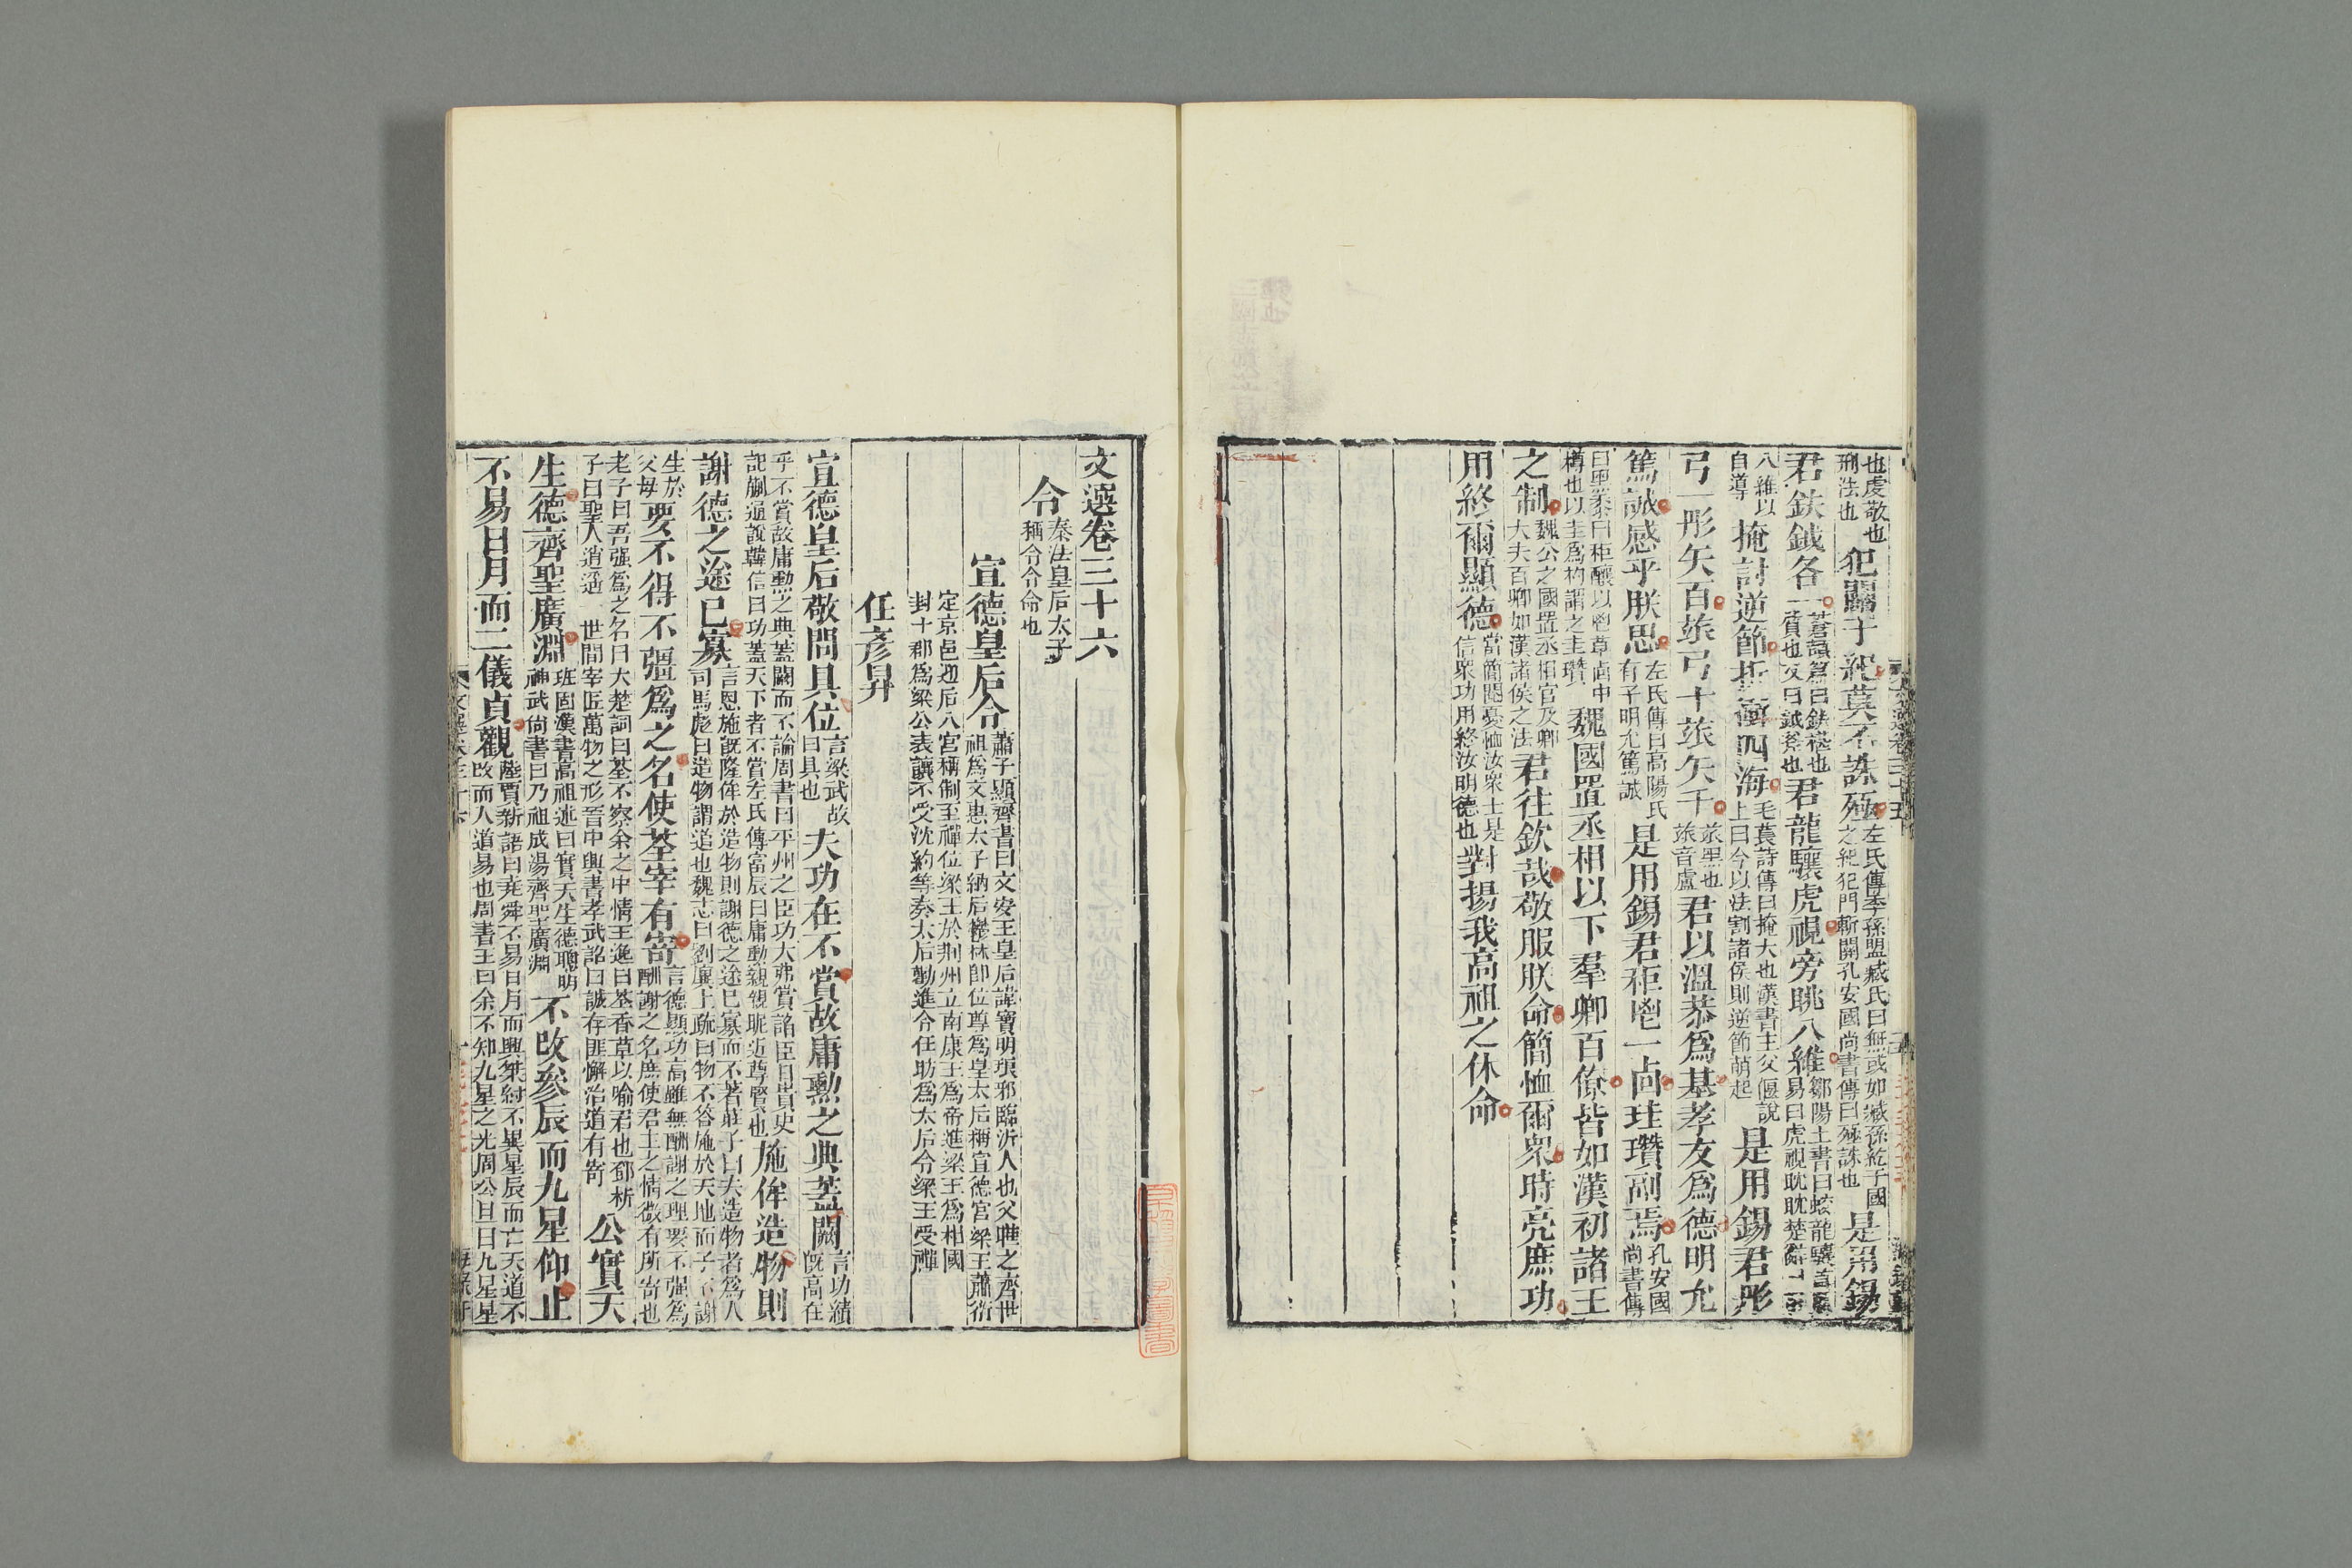 也虔敬也
刑法也
犯關干紀莫不誅殛
左氏傳季孫盟臧氏曰無或如臧孫紇干國
之紀犯門斬關孔安國尚書傳曰殛誅也
是用錫
君鈇鉞各一
蒼頡篇曰鈇椹也
質也又曰鉞斧也
君龍驤虎視旁眺八維
鄒陽上書曰蛟龍驤首
易曰虎視眈眈楚辭曰
八維以
自導
掩討逆節折衝四海
毛萇詩傳曰掩大也漢書主父偃說
上曰今以法割諸侯則逆節萌起
是用錫君彤
弓一彤矢百玈弓十玈矢千
玈黑也
玈音盧
君以溫恭爲基孝友爲德明允
篤誠感乎朕思
左氏傳曰高陽氏
有子明允篤誠
是用錫君秬鬯一卣珪瓚副焉
孔安國
尚書傳
曰黑黍曰秬釀以鬯草卣中
樽也以圭爲杓謂之圭瓚
魏國置丞相以下羣卿百僚皆如漢初諸王
之制
魏公之國置丞相官及卿
大夫百卿如漢諸侯之法
君往欽哉敬服朕命簡恤爾衆時亮庶功
用終爾顯德
當簡閱憂恤汝衆士是
信衆功用終汝明德也
對揚我高祖之休命
文選卷三十六
令
秦法皇后太子
稱令令命也
宣德皇后令
蕭子顯齊書曰文安王皇后諱寶明琅邪臨沂人也父曄之齊世
祖爲文惠太子納后鬱林卽位尊爲皇太后稱宣德宮梁王蕭衍
定京邑迎后入宮稱制至禪位梁王於荆州立南康王爲帝進梁王爲相國
封十郡爲梁公表讓不受沈約等奏太后勸進令任昉爲太后令梁王受禪
任彥昇
宣德皇后敬問具位
言梁武故
曰具也
夫功在不賞故庸勲之典蓋闕
言功績
旣高在
乎不賞故庸勲之典蓋闕而不論周書曰平州之臣功大弗賞諂臣日貴史
記蒯通說韓信曰功蓋天下者不賞左氏傳富辰曰庸勲親親昵近尊賢也
施侔造物則
謝德之途已寡
言恩施旣隆侔於造物則謝德之途已寡而不著莊子曰夫造物者爲人
司馬彪曰造物謂道也魏志曰劉廙上疏曰物不答施於天地而子不謝
生於
父母
要不得不彊爲之名使荃宰有寄
言德顯功高雖無酬謝之理要不强爲
酬謝之名庶使君主之情微有所寄也
老子曰吾强爲之名曰大楚詞曰荃不察余之中情王逸曰荃香草以喻君也鄧析
子曰聖人逍遙一世間宰匠萬物之形晉中興書孝武詔曰誠存匪懈治道有寄
公實天
生德齊聖廣淵
班固漢書高祖述曰實天生德聰明
神武尚書曰乃祖成湯齊聖廣淵
不改參辰而九星仰止
不易日月而二儀貞觀
陸賈新語曰堯舜不易日月而興桀紂不異星辰而亡天道不
改而人道易也周書王曰余不知九星之光周公旦曰九星星